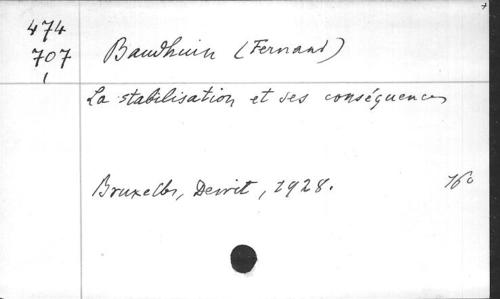 474
707 Baudhuin (Fernand)
1
La stabilisation et ses conséquences
Bruxelles, Dewit, 1928. 16°